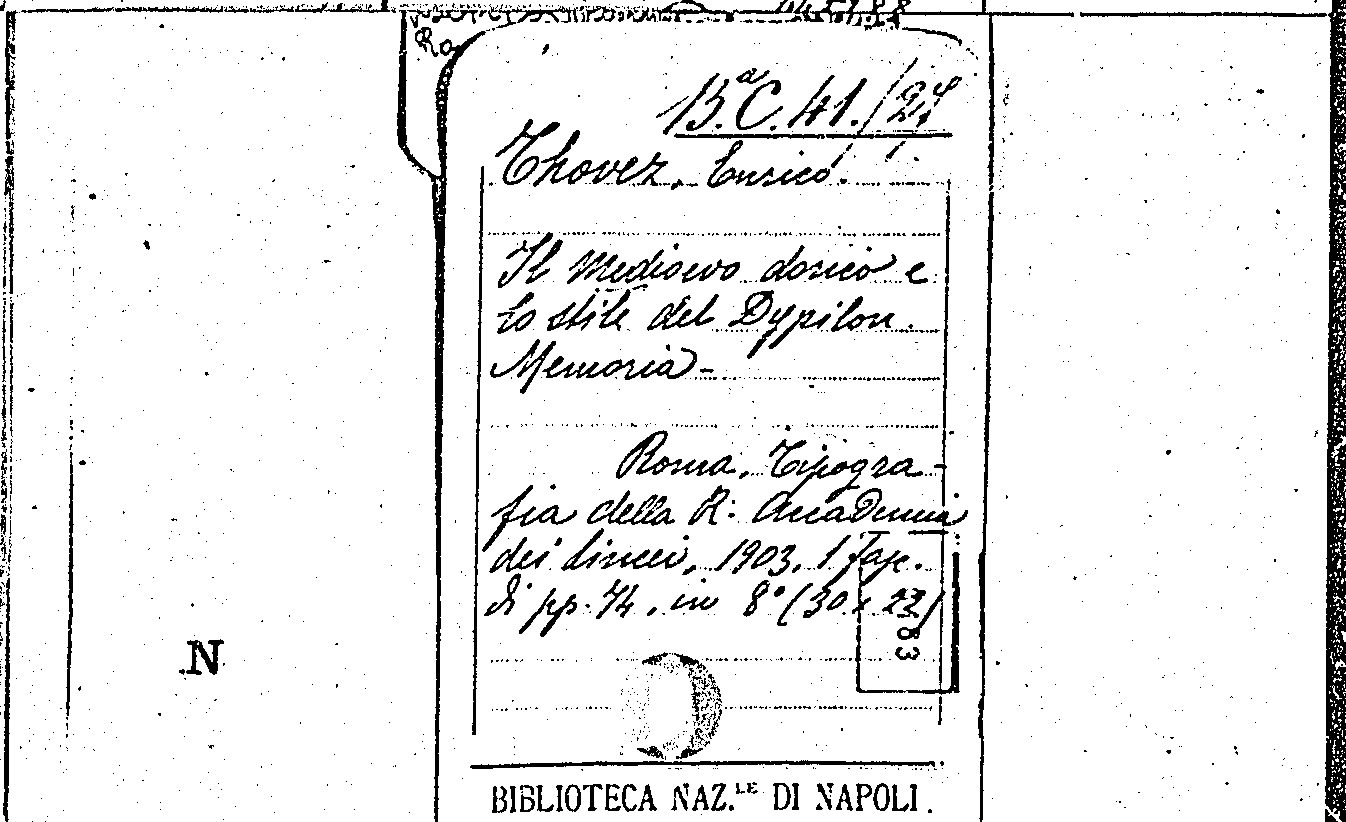 Ro
13.ª C. 41./27
Thovez, Enrico.
Il Medioevo dorico e
lo stile del Dypilon.
Memoria -
Roma, Tipogra-
fia della R: Accademia
dei Lincei, 1903, 1 fasc.
di pp. 74, in 8° (30 x 22)
83
N
BIBLIOTECA NAZ.LE DI NAPOLI.